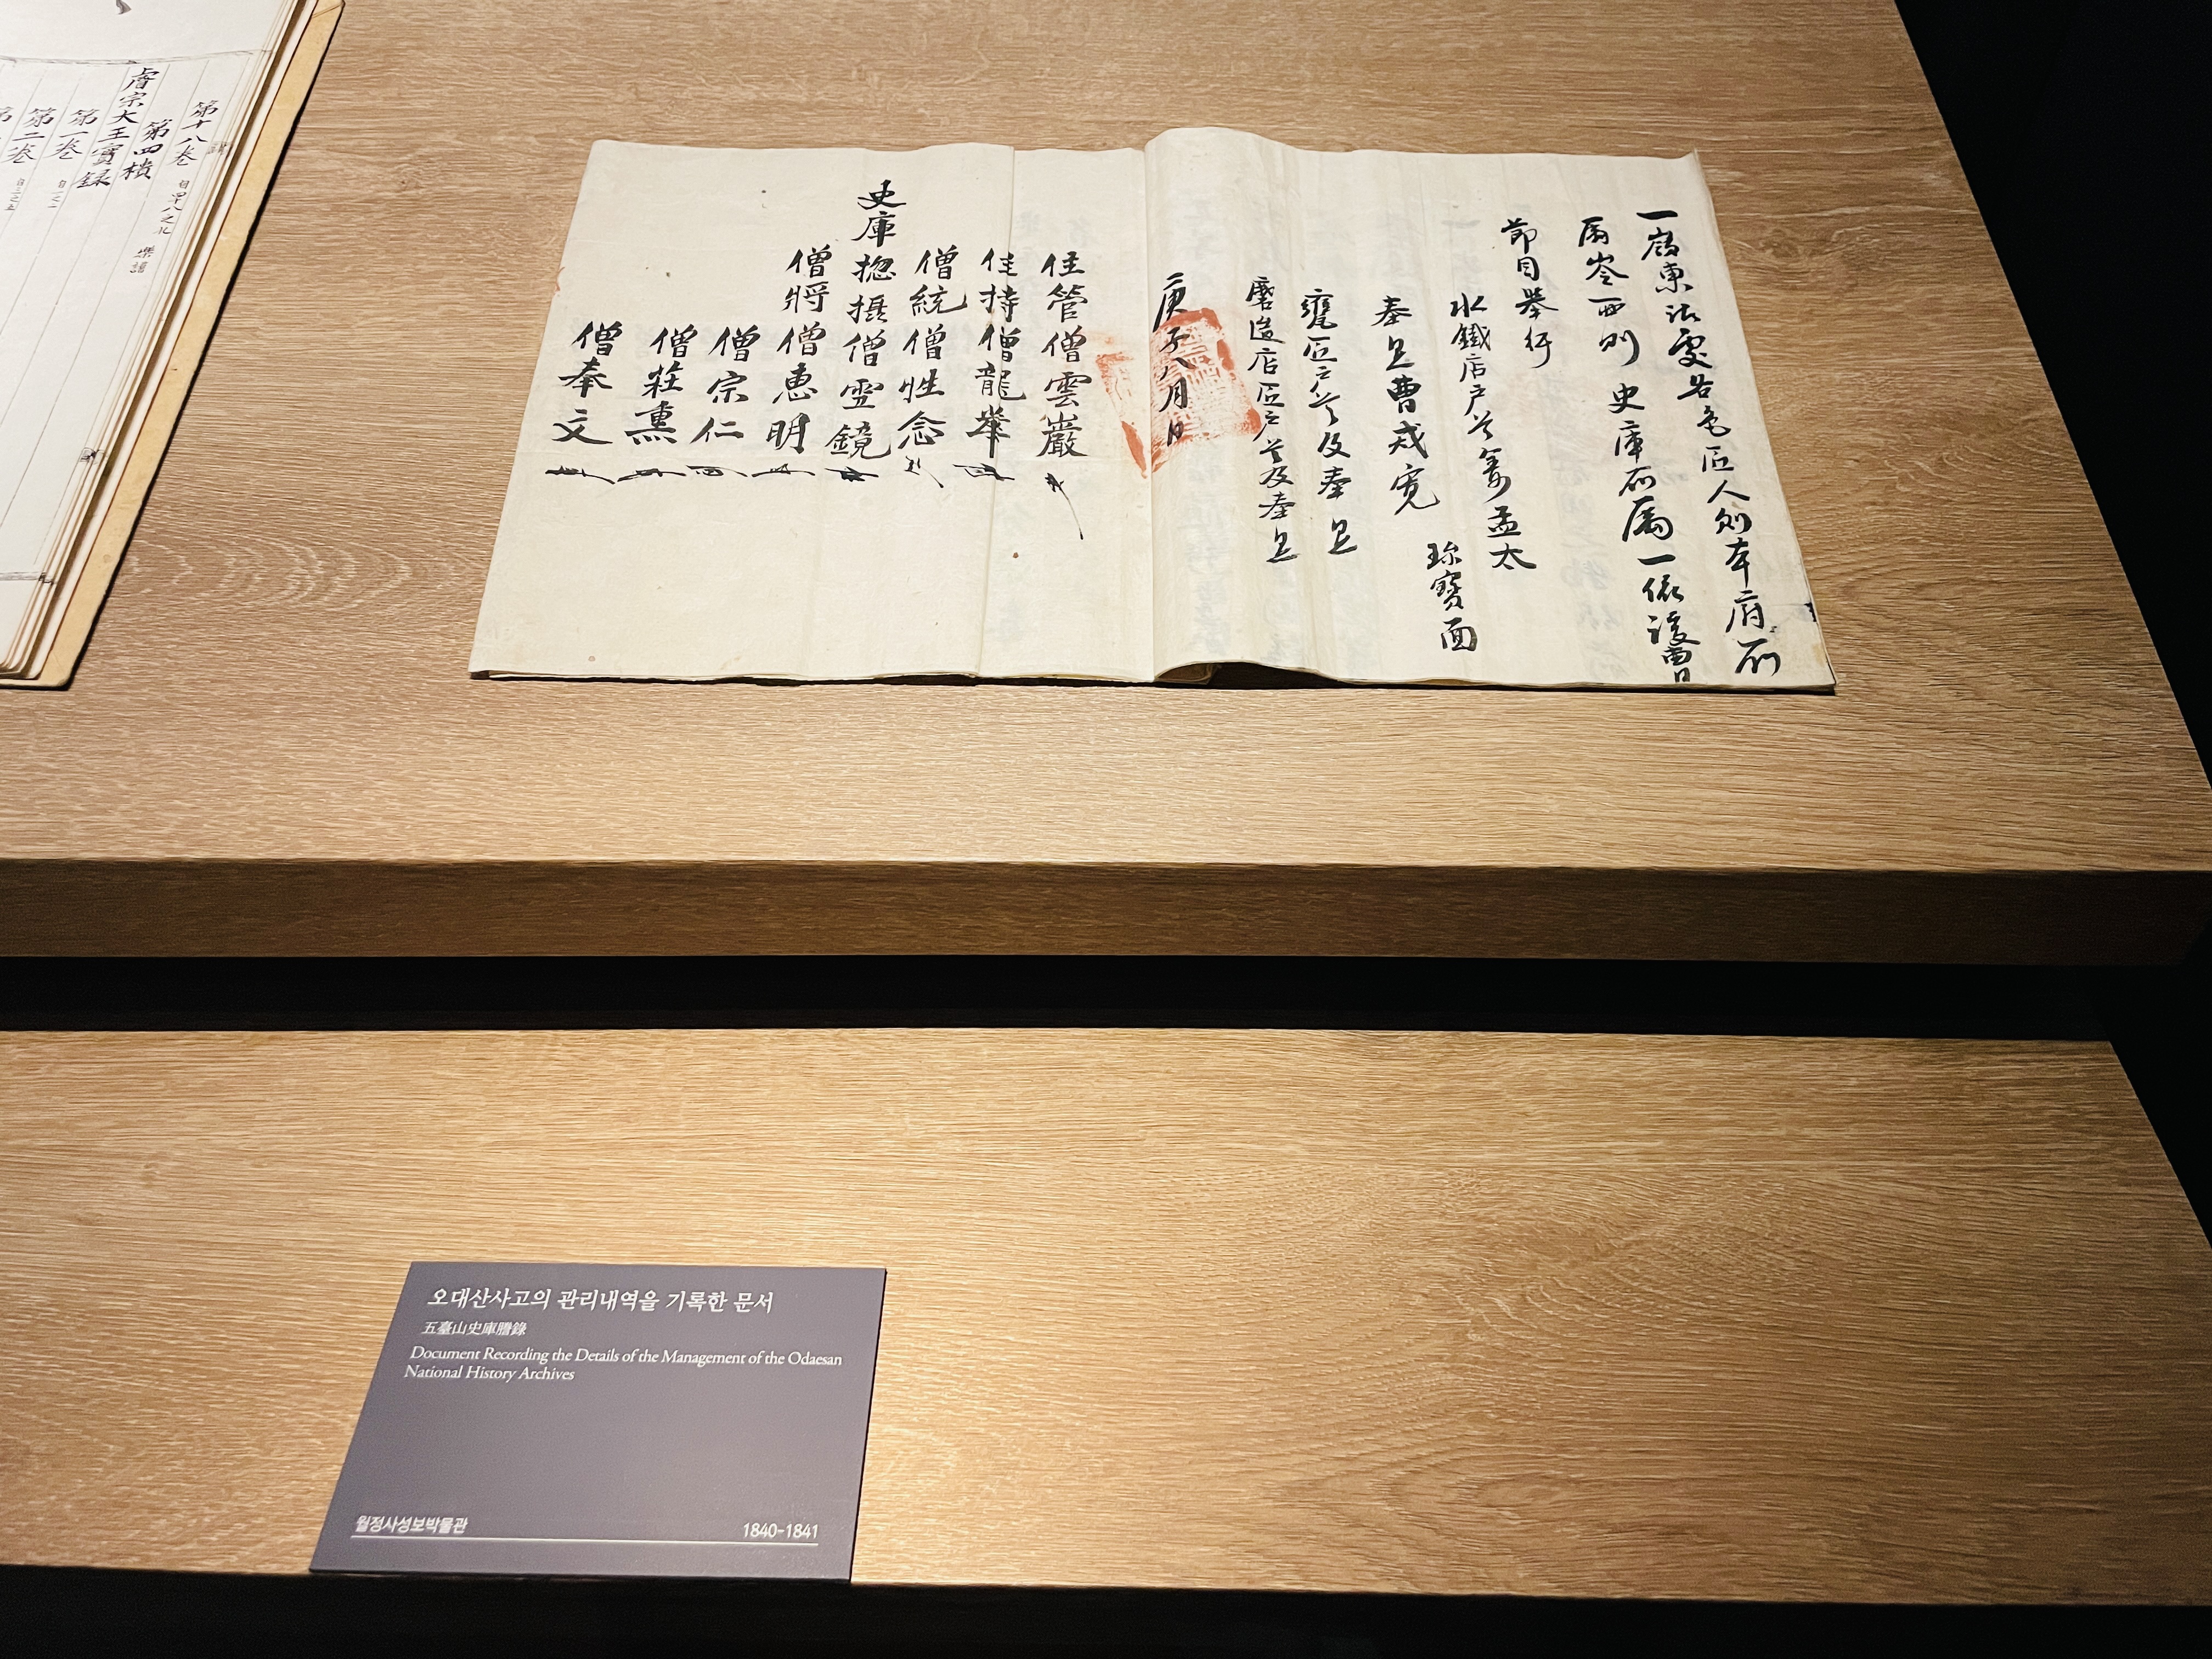 一嶺東沿處各色匠人則本府所
屬岺西則 史庫所屬一依後
節目擧行
水鐵店戶首 孟太
珎寶面
奉足曹戎寬
甕匠戶首及奉足
磨造店匠戶首及奉足
庚子八月 日
住管僧雲巖
住持僧龍華
僧統僧性念
史庫摠攝僧雪鏡
僧將僧惠明
僧宗仁
僧莊熏
僧奉文
第十八卷
第四樻
睿宗大王實錄
第一卷
第二卷
오대산사고의 관리내역을 기록한 문서
五臺山史庫謄錄
Document Recording the Details of the Management of the Odaesan
National History Archives
월정사성보박물관
1840-1841